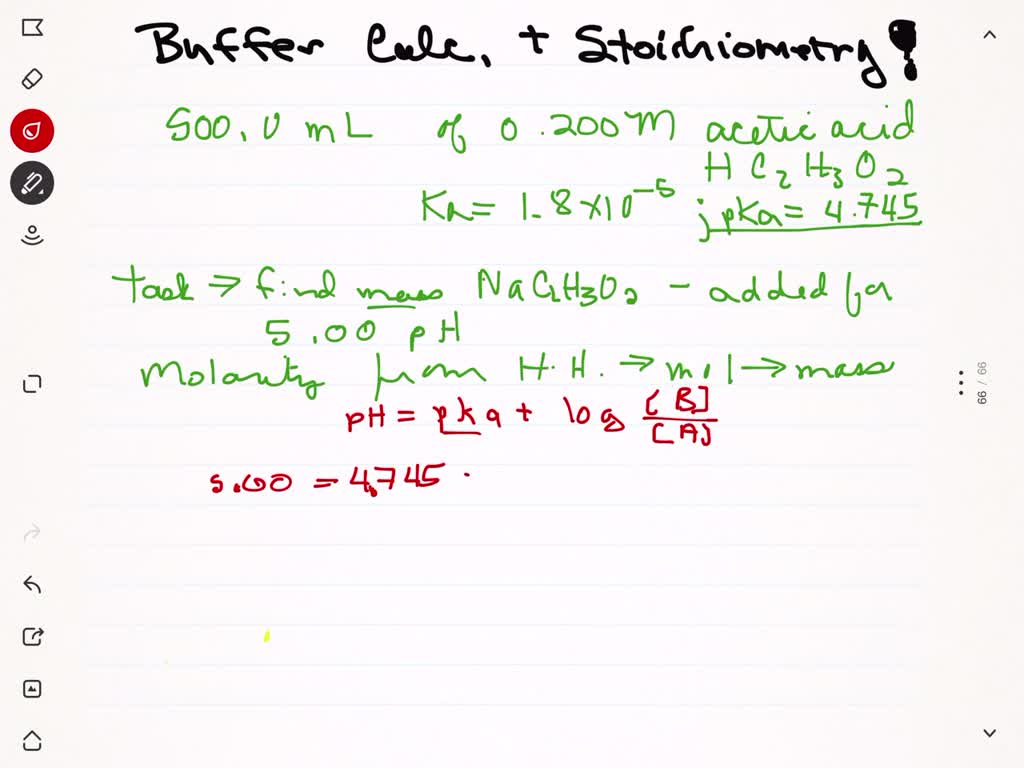 Buffer Calc. + Stoichiometry!
500.0 mL of 0.200M acetic acid
HC2H3O2
Ka = 1.8 x10-5 ; pKa = 4.745
Task ⇒ find mass NaC2H3O2 - added for
5.00 pH
Molarity from H.H. → mol → mass
pH = pka + log [B]/[A]
5.00 = 4.745
99 / 99